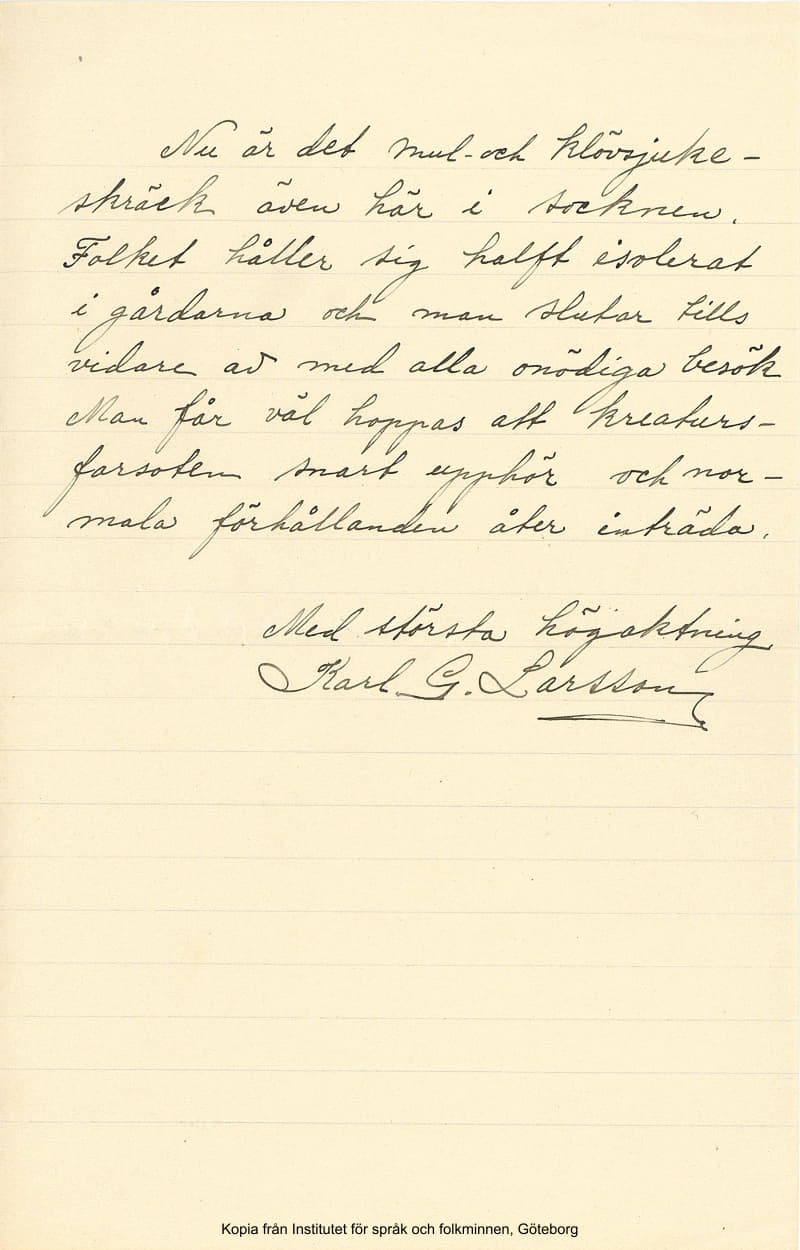 Nu är det mul- och klövsjuke-
skräck även här i socknen.
Folket håller sig halft isolerat
i gårdarna och man slutar tills
vidare av med alla onödiga besök
Man får väl hoppas att kreaturs-
farsoten snart upphör och nor-
mala förhållanden åter inträda.
Med största högaktning
Karl G. Larsson
Kopia från Institutet för språk och folkminnen, Göteborg